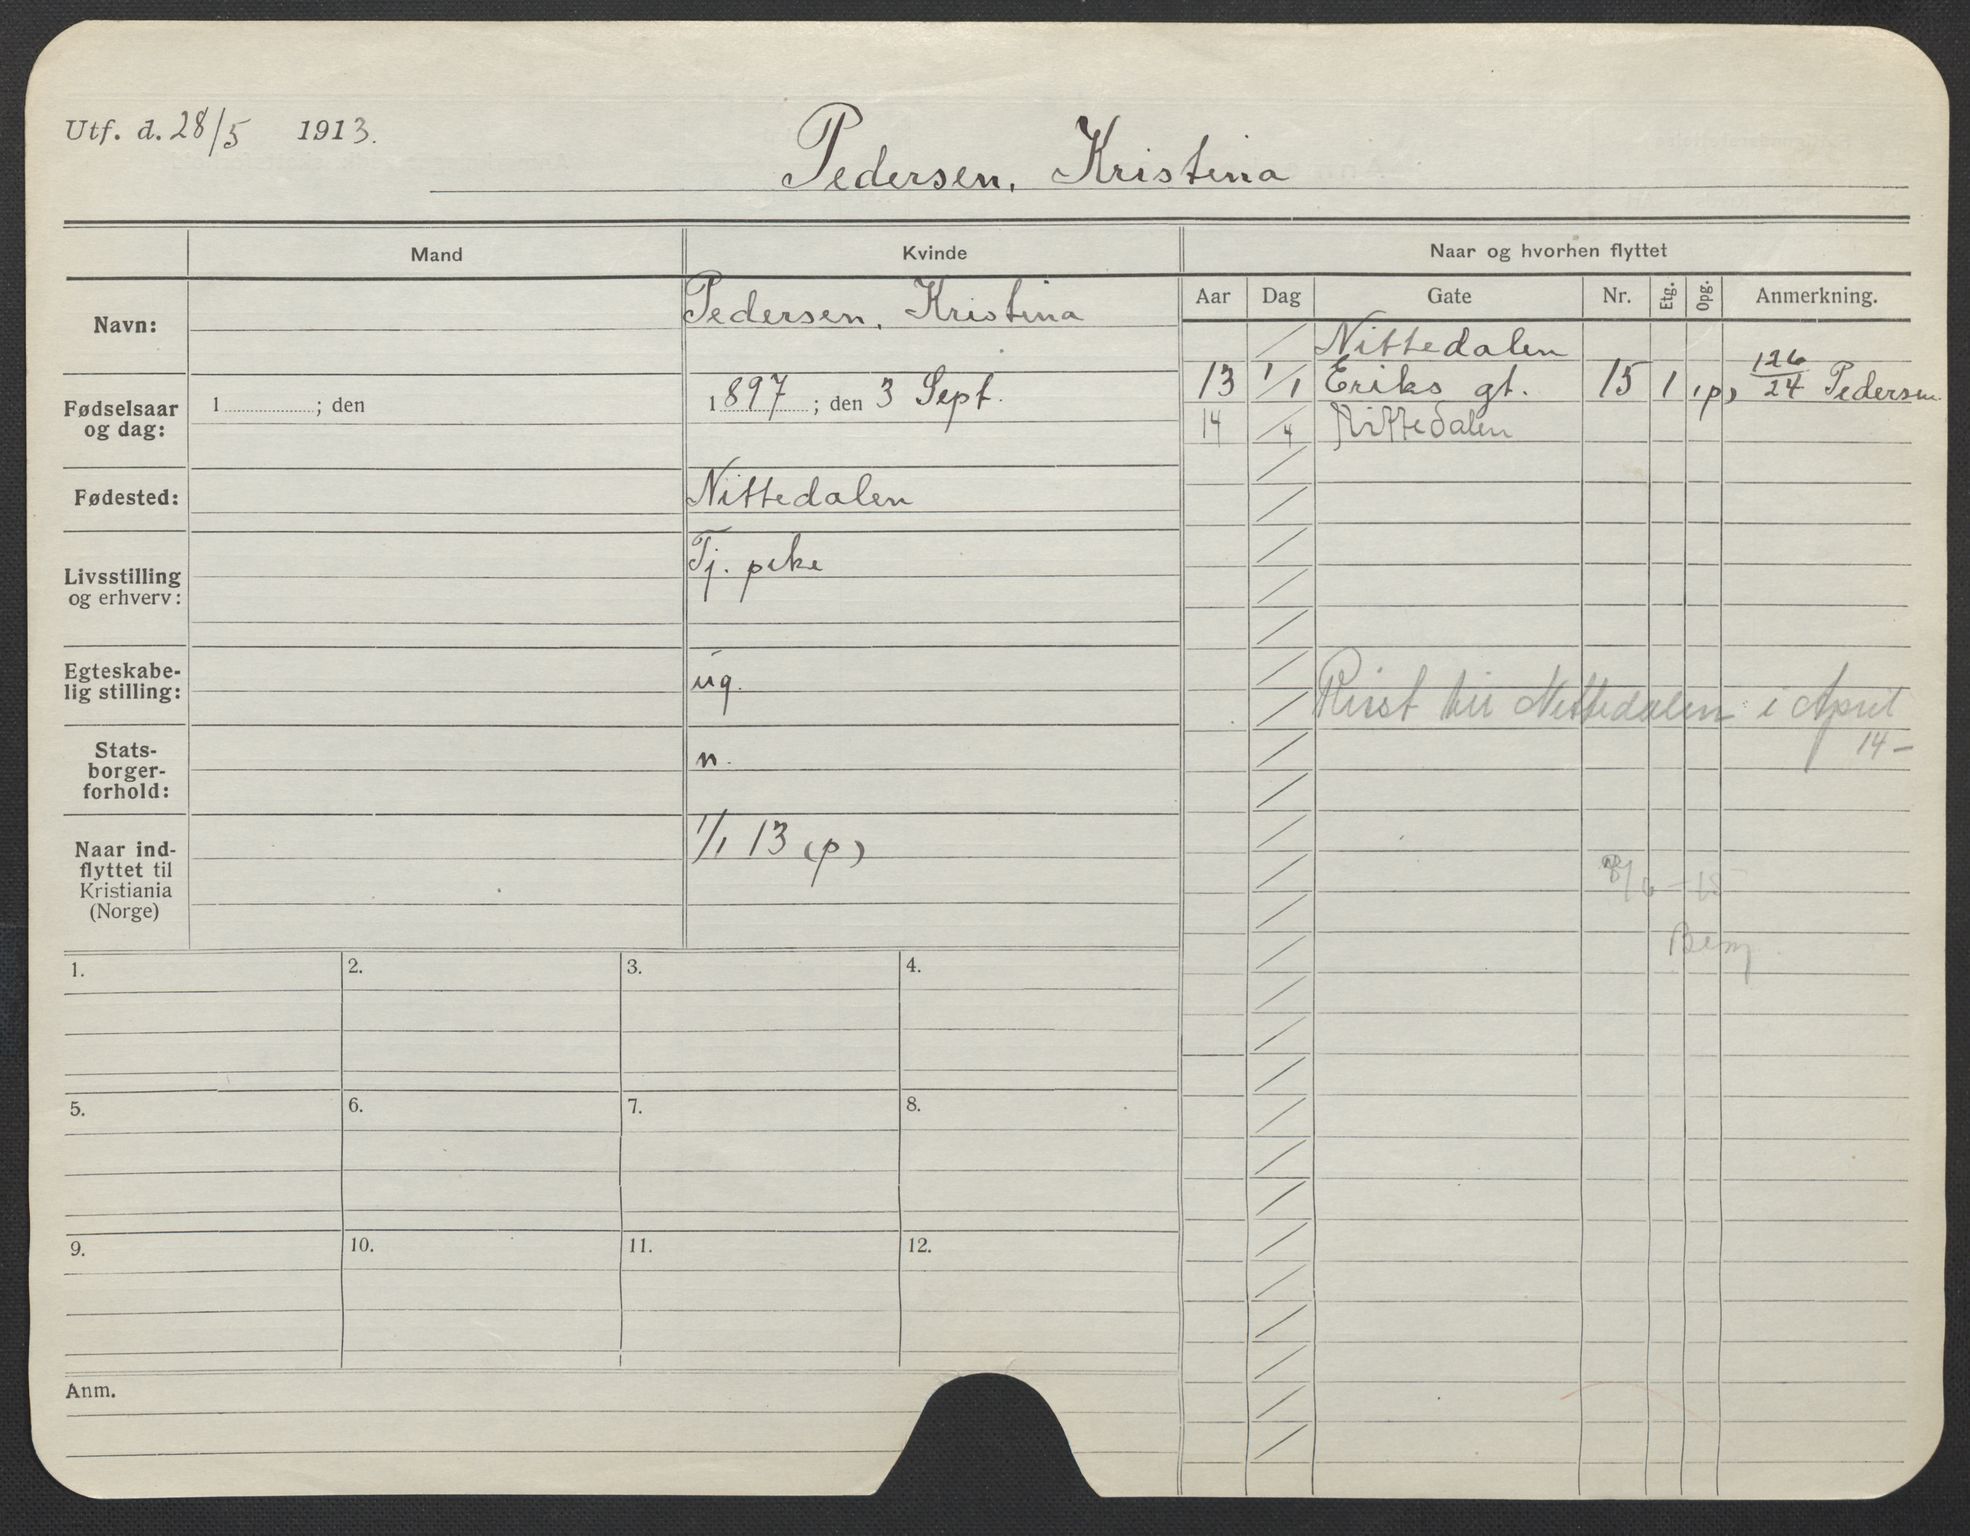 Utf. d. 28/5 1913.
Pedersen, Kristina
Mand
Kvinde
Naar og hvorhen flyttet
Navn:
Pedersen, Kristina
Fødselsaar
og dag:
1 ; den
1897 ; den 3 Sept.
Fødested:
Nittedalen
Livsstilling
og erhverv:
Tj. pike
Egteskabe-
lig stilling:
ug.
Stats-
borger-
forhold:
n.
Naar ind-
flyttet til
Kristiania
(Norge)
1/1 13 (p)
Aar Dag Gate Nr. Etg. Opg. Anmerkning.
Nittedalen
13 1/1 Eriks gt. 15 1 (p) 126/24 Pedersen
14 /4 Nittedalen
Nittedalen i April
14-
1.
2.
3.
4.
5.
6.
7.
8.
9.
10.
11.
12.
Anm.